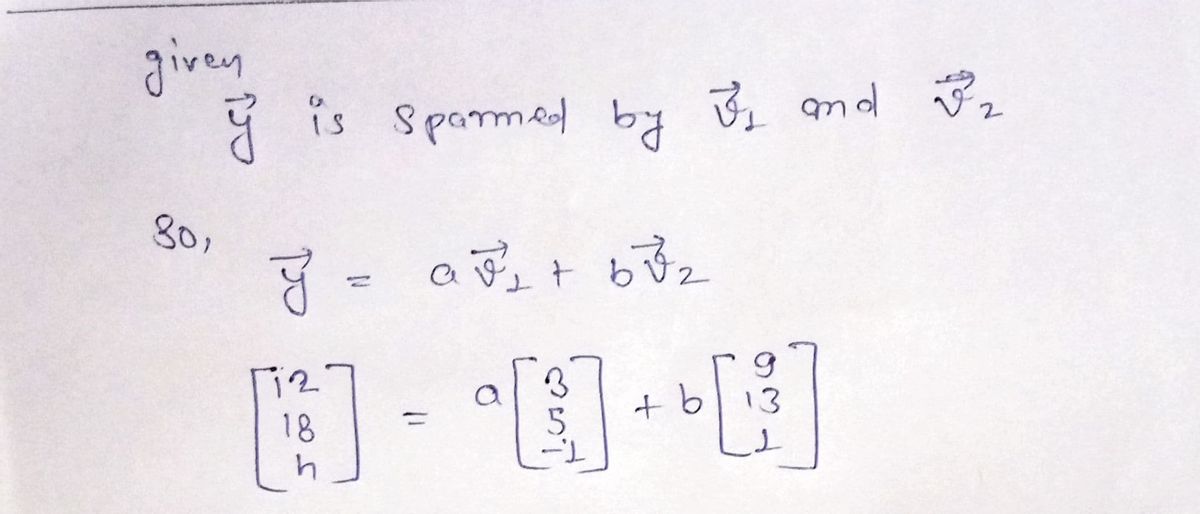 given
y⃗ is spanned by v⃗₁ and v⃗₂
So,
y⃗ = a v⃗₁ + b v⃗₂
[12 18 h] = a [3 5 -1] + b [9 13 1]